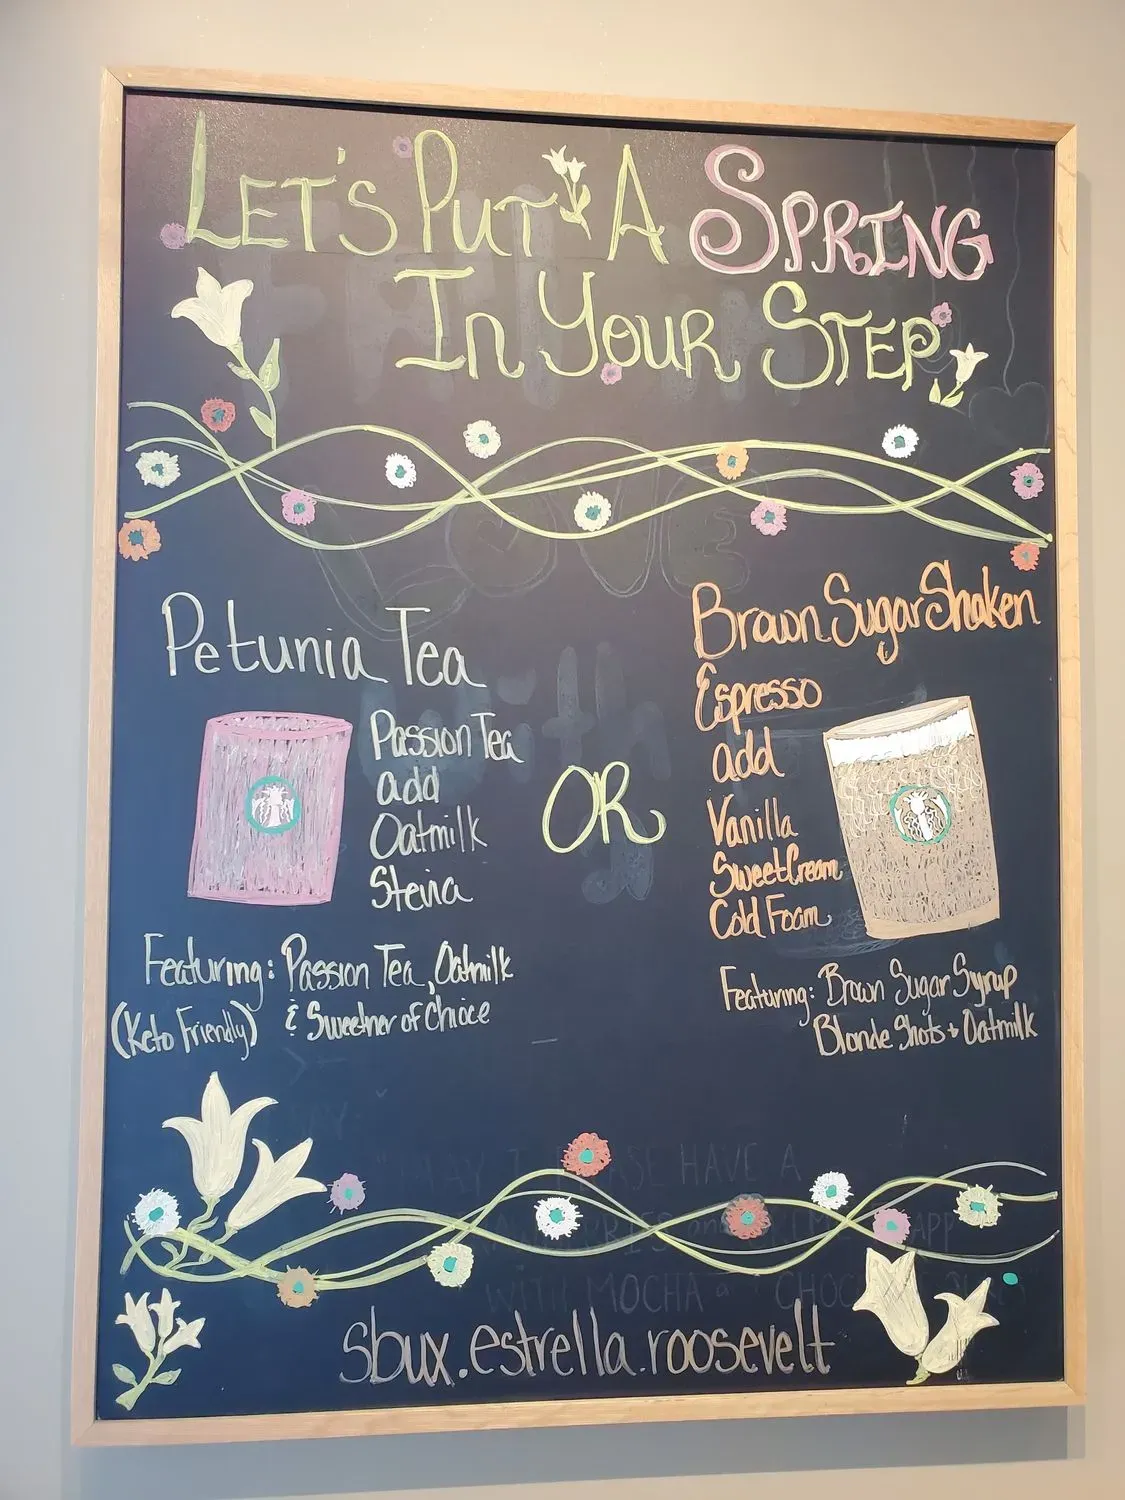 LET'S PUT A SPRING
IN YOUR STEP
Petunia Tea
Passion Tea
add
Oatmilk
Stevia
Featuring: Passion Tea, Oatmilk
(Keto Friendly) & Sweetner of Chioce
OR
Brown Sugar Shaken
Espresso
add
Vanilla
Sweet Cream
Cold Foam
Featuring: Brown Sugar Syrup
Blonde Shots + Oatmilk
LOVE
with
HAVE A
WITH MOCHA
sbux.estrella.roosevelt